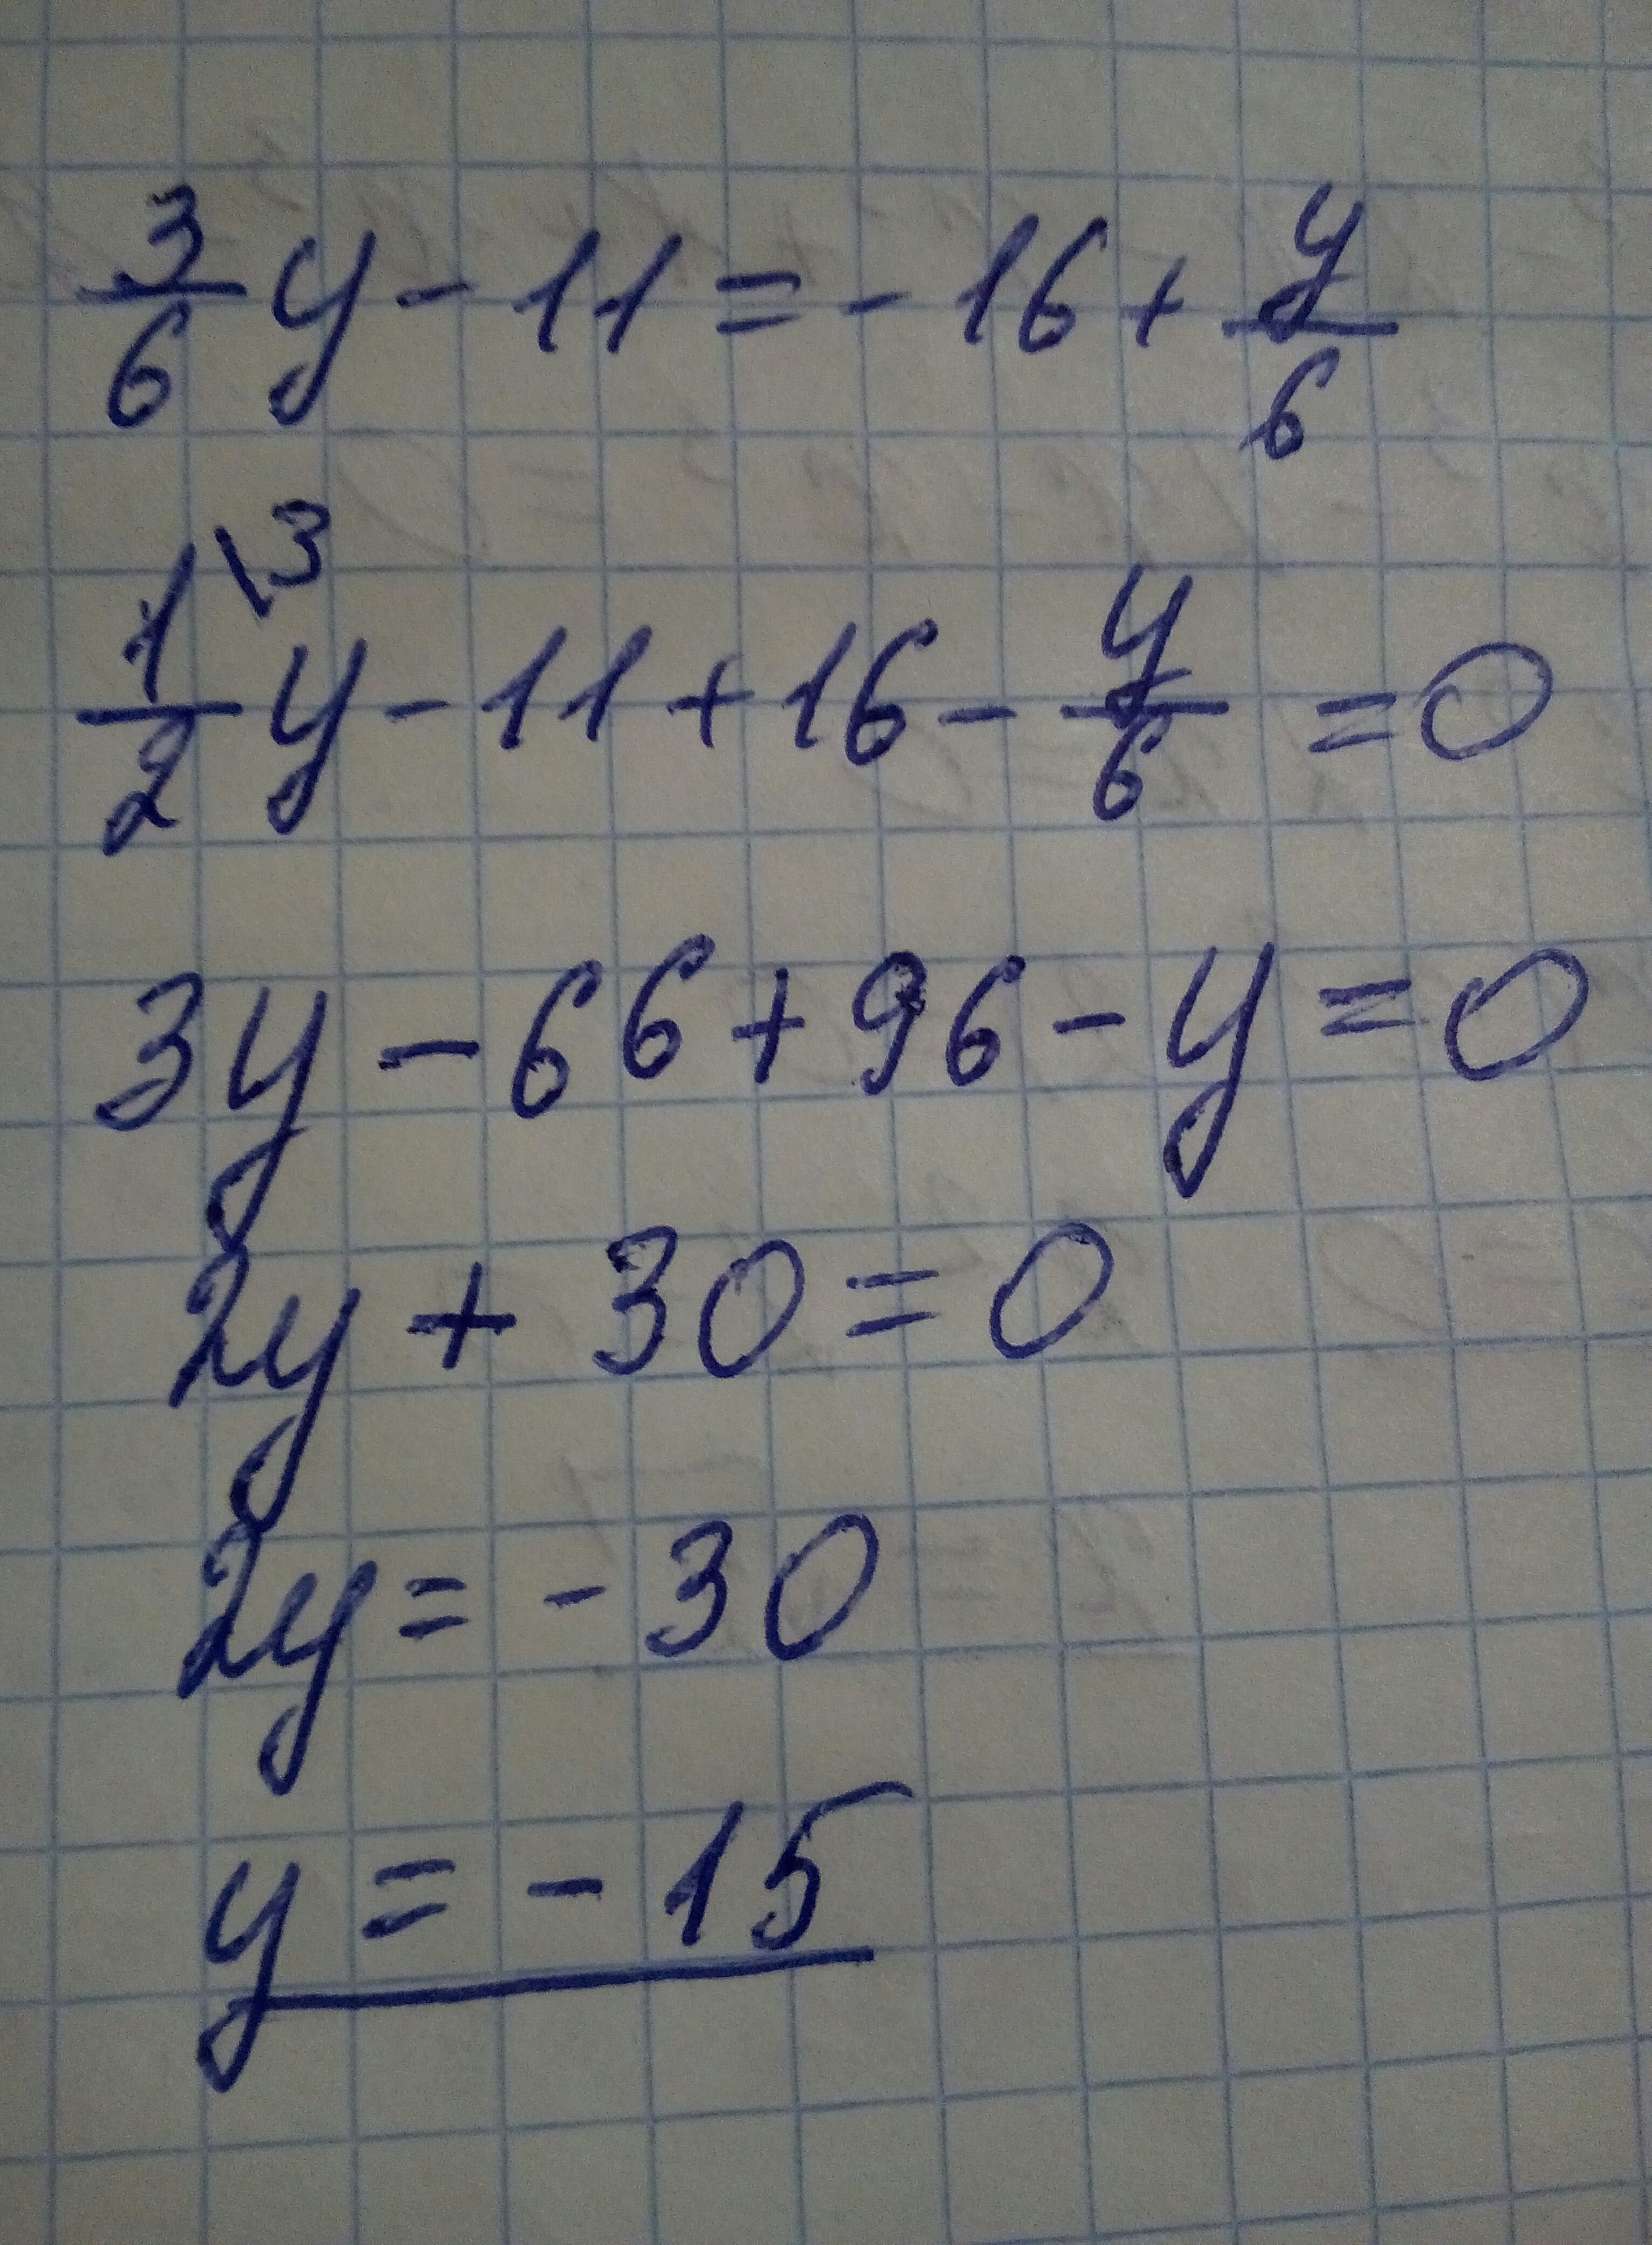 3/6 y - 11 = - 16 + y/6
1\3/2 y - 11 + 16 - y/6 = 0
3y - 66 + 96 - y = 0
2y + 30 = 0
2y = - 30
y = - 15